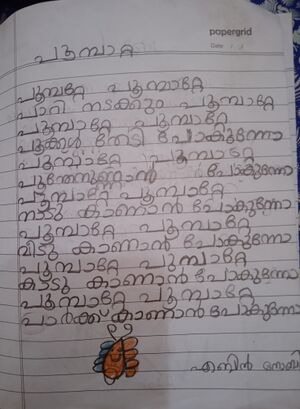 papergrid
Date
പൂമ്പാറ്റ
പൂമ്പറ്റേ പൂമ്പാറ്റേ
പാറി നടക്കും പൂമ്പാറ്റേ
പൂമ്പാറ്റേ പൂമ്പാറ്റേ
പൂക്കൾ തേടി പോകുന്നോ
പൂമ്പാറ്റേ പൂമ്പാറ്റേ
പൂന്തേനുണ്ണാൻ പോകുന്നോ
പൂമ്പാറ്റേ പൂമ്പാറ്റേ
നാടു കാണാൻ പോകുന്നോ
പൂമ്പാറ്റേ പൂമ്പാറ്റേ
വീടു കാണാൻ പോകുന്നോ
പൂമ്പാറ്റേ പുമ്പാറ്റേ
കാടു കാണാൻ പോകുന്നോ
പൂമ്പാറ്റേ പൂമ്പാറ്റേ
പാർക്ക് കാണാൻ പോകുന്നോ